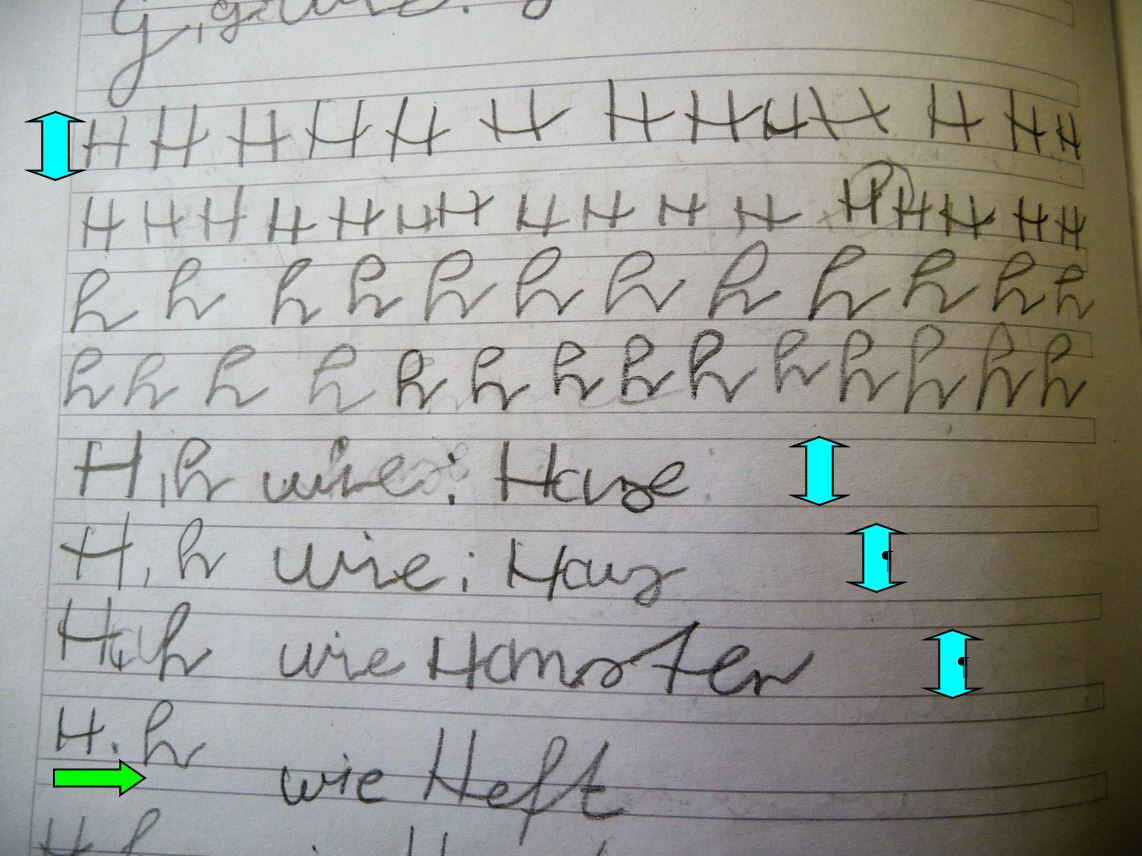 G, g wie:
H H H H H H H H H H H H H
H H H H H H H H H H H H H H H H
h h h h h h h h h h h h
h h h h h h h h h h h h h h
H, h wie: Hause
H, h wie: Haus
H, h wie Hamster
H, h wie Heft